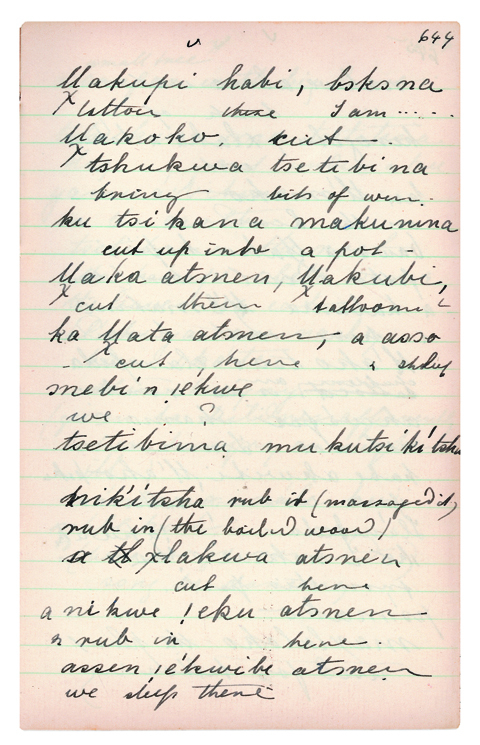 644
Uakupi habi, bsksna
tattou these I am.....
Uakoko. cut.
Xtshukwa tsetibi na
bring bits of
ku tsi kana makunina
cut up into a pot -
Uaka atsmen, Uakubi,
X cut them X tattoo
ka Uata atsmen, a asso
- X cut, here
snebi'n iekwe
we ?
tsetibima mukutsíkítsha
nikítsha rub it (massaged it)
rub in (the boiled wood)
Xlakwa atsnen
cut here
a nikwe !eku atsnen
rub in here.
assen, iékwibe atsmen
we sleep there